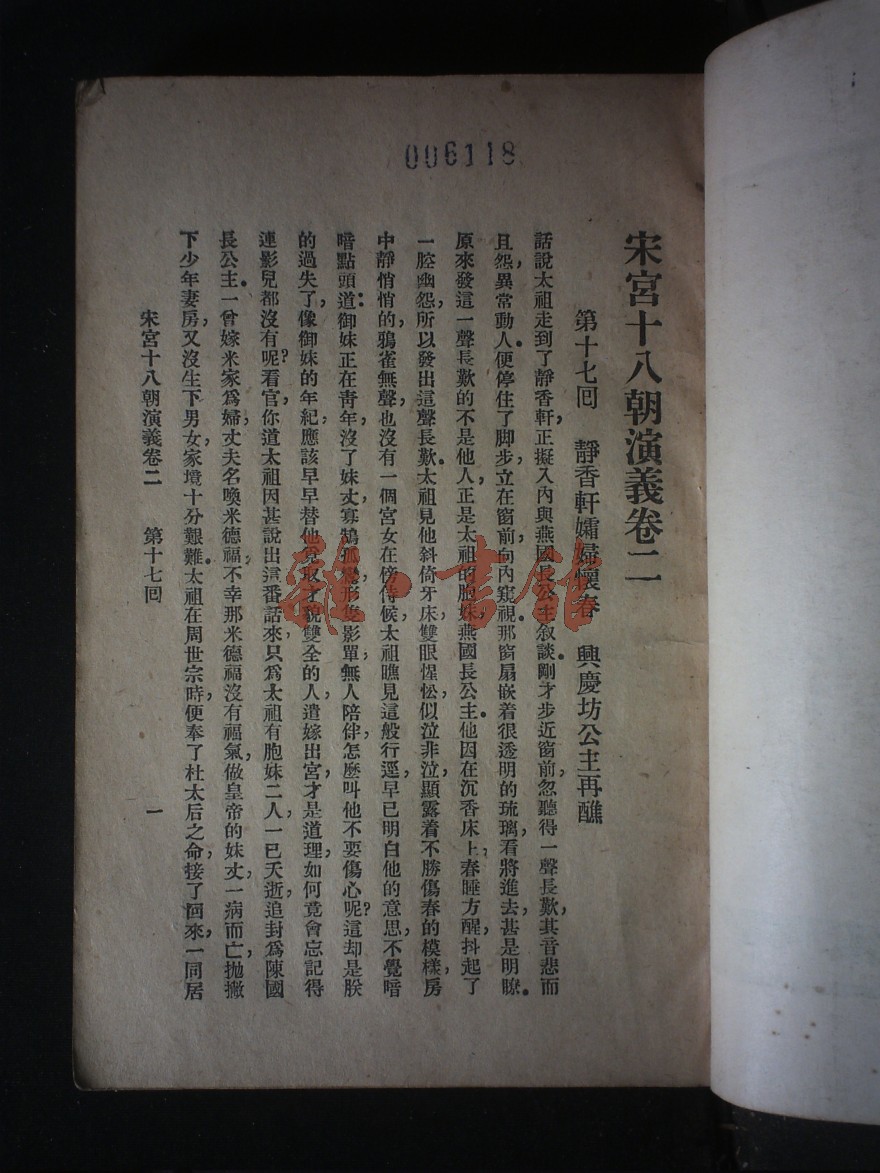 006118
宋宮十八朝演義卷二
第十七囘 靜香軒孀婦懷春 興慶坊公主再醮
話說太祖走到了靜香軒,正擬入內與燕國長公主叙談。剛才步近窗前,忽聽得一聲長歎,其音悲而
且怨,異常動人。便停住了脚步,立在窗前,向內窺視。那窗扇嵌着很透明的琉璃,看將進去,甚是明瞭。
原來發這一聲長歎的,不是他人,正是太祖的胞妹燕國長公主。他因在沉香床上,春睡方醒,抖起了
一腔幽怨,所以發出這聲長歎。太祖見他斜倚牙床,雙眼惺忪,似泣非泣,顯露着不勝傷春的模樣,房
中靜悄悄的,鴉雀無聲,也沒有一個宮女在傍侍候。太祖瞧見這般行逕,早已明白他的意思,不覺暗
暗點頭道:御妹正在靑年,沒了妹丈,寡鵠孤鸞,形隻影單,無人陪伴,怎麼叫他不要傷心呢?這却是朕
的過失了,像御妹的年紀,應該早早替他覓取才貌雙全的人,遣嫁出宮,才是道理,如何竟會忘記得
連影兒都沒有呢?看官,你道太祖因甚說出這番話來,只爲太祖有胞妹二人,一已夭逝,追封爲陳國
長公主。一曾嫁米家爲婦,丈夫名喚米德福,不幸那米德福沒有福氣,做皇帝的妹丈,一病而亡,抛撇
下少年妻房,又沒生下男女,家境十分艱難。太祖在周世宗時,便奉了杜太后之命,接了囘來,一同居
宋宮十八朝演義卷二 第十七囘 一
雜·書館